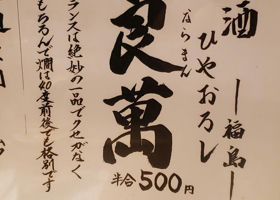 酒
ひやおろし
ー福島ー
ならまん
良萬
半合500円
ランスは絶妙の一品でクセがなく
もちろんで燗は40度前後でも格別です